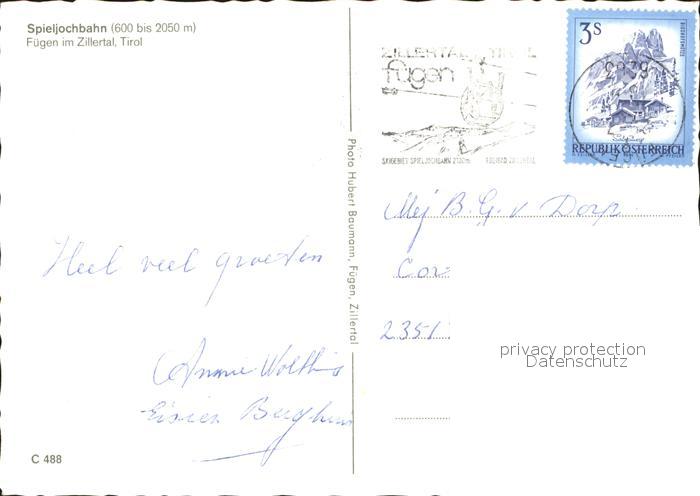 Spieljochbahn (600 bis 2050 m)
Fügen im Zillertal, Tirol
Heel veel groeten
Annie Wolthuis
C 488
Photo Hubert Baumann, Fügen, Zillertal
ZILLERTAL TIROL
fügen
SKIGEBIET SPIELJOCHBAHN
3S
REPUBLIK ÖSTERREICH
Mej B. G. v Dorp
Cor
2351
privacy protection
Datenschutz